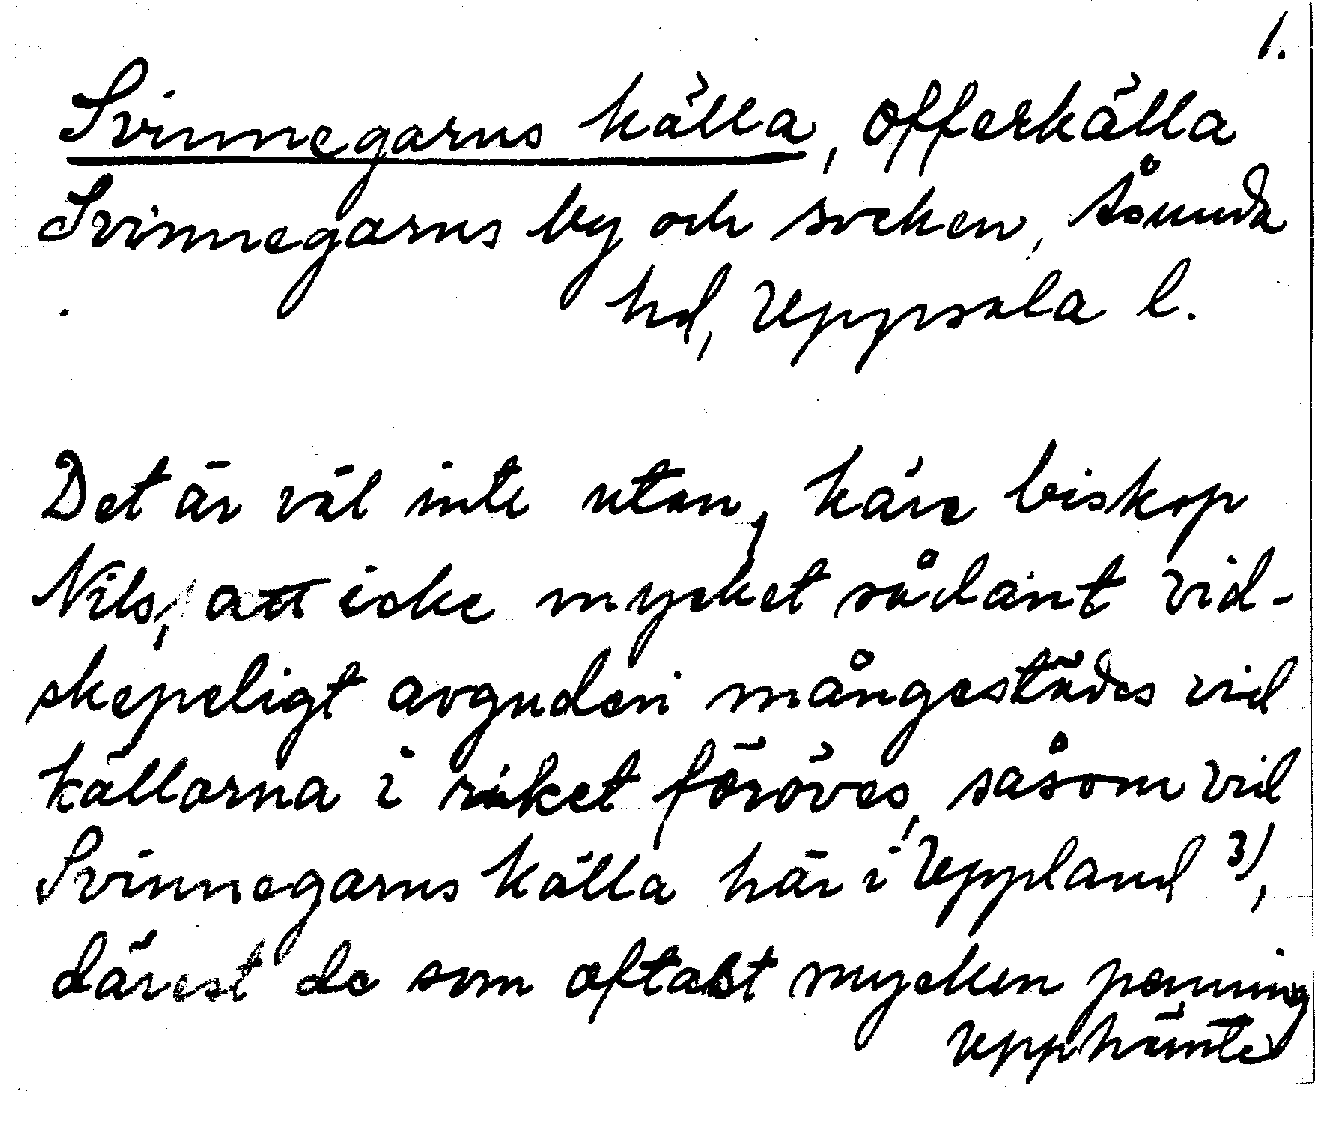 1.
Svinnegarns källa, offerkälla
Svinnegarns by och socken, Åsunda
hd, Uppsala l.
Det är väl inte utan, käre biskop
Nils, att icke mycket sådant vid-
skepeligt avguderi mångestädes vid
källorna i riket föröves, såsom vid
Svinnegarns källa här i Uppland 3),
därest de som oftast mycken penning
upphämte